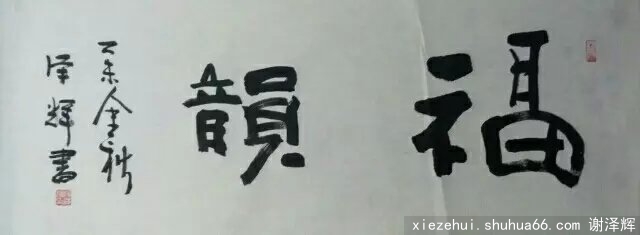 福韻
乙未金秋
泽辉書
xiezehui.shuhua66.com 谢泽辉